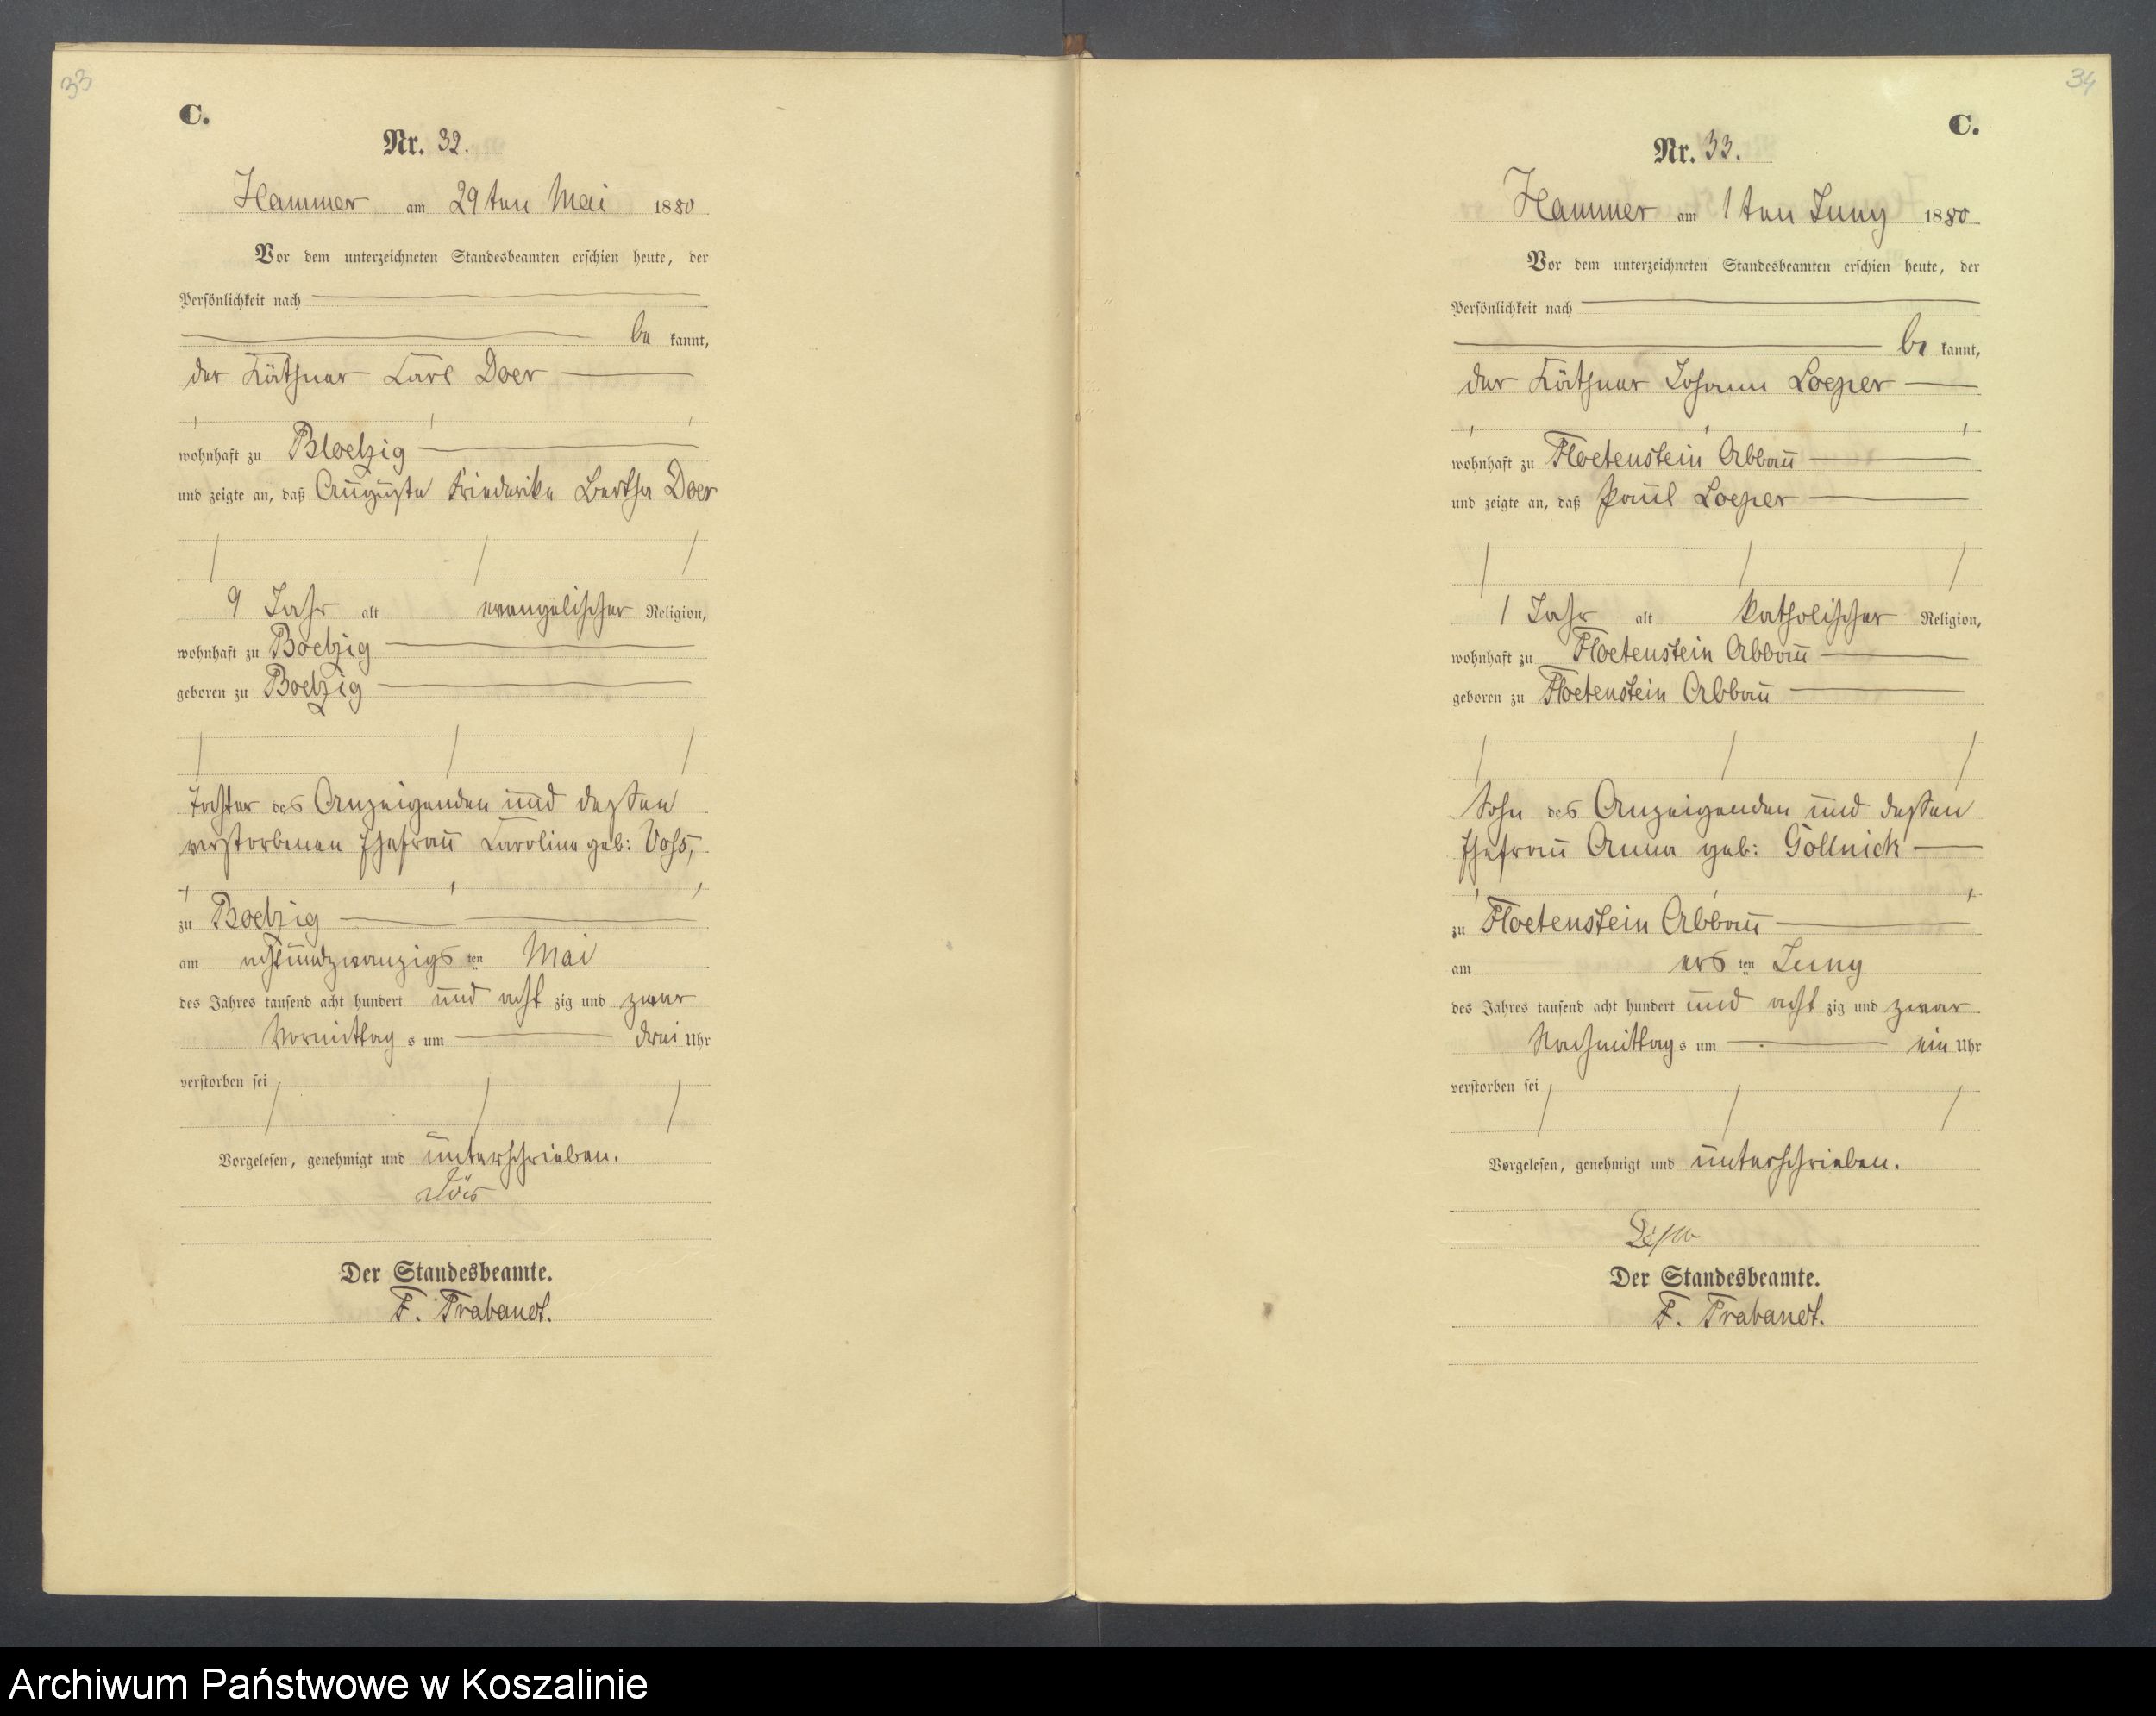 33
C.
Nr. 32.
Hammer am 29ten Mai 1880
Vor dem unterzeichneten Standesbeamten erschien heute, der
Persönlichkeit nach
be kannt,
der Käthner Carl Doer
wohnhaft zu Bloetzig
und zeigte an, daß Auguste Friederike Bertha Doer
9 Jahr alt evangelischer Religion,
wohnhaft zu Boetzig
geboren zu Boetzig
Tochter des Anzeigenden und dessen
verstorbenen Ehefrau Caroline geb: Voss,
zu Boetzig
am achtundzwanzigs ten Mai
des Jahres tausend acht hundert und acht zig und zwar
Vormittag s um drei Uhr
verstorben sei
Vorgelesen, genehmigt und unterschrieben.
Der Standesbeamte.
F. Trabandt.
34
C.
Nr. 33.
Hammer am 1ten Juny 1880
Vor dem unterzeichneten Standesbeamten erschien heute, der
Persönlichkeit nach
be kannt,
der Käthner Johann Loeper
wohnhaft zu Floetenstein Abbau
und zeigte an, daß Paul Loeper
1 Jahr alt katholischer Religion,
wohnhaft zu Floetenstein Abbau
geboren zu Floetenstein Abbau
Sohn des Anzeigenden und dessen
Ehefrau Anna geb: Gollnick
zu Floetenstein Abbau
am ers ten Juny
des Jahres tausend acht hundert und acht zig und zwar
Nachmittag s um ein Uhr
verstorben sei
Vorgelesen, genehmigt und unterschrieben.
Der Standesbeamte.
F. Trabandt.
Archiwum Państwowe w Koszalinie